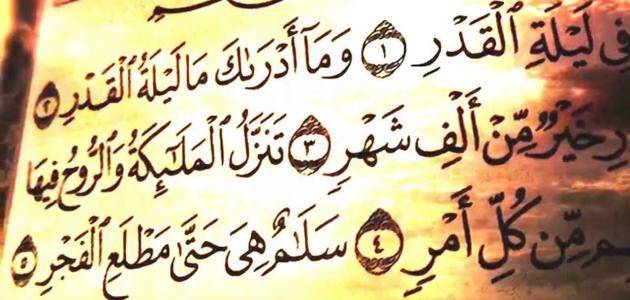 فِي لَيْلَةِ ٱلْقَدْرِ ١ وَمَآ أَدْرَىٰكَ مَا لَيْلَةُ ٱلْقَدْرِ ٢
خَيْرٌ مِّنْ أَلْفِ شَهْرٍ ٣ تَنَزَّلُ ٱلْمَلَٰٓئِكَةُ وَٱلرُّوحُ فِيهَا
مِّن كُلِّ أَمْرٍ ٤ سَلَٰمٌ هِيَ حَتَّىٰ مَطْلَعِ ٱلْفَجْرِ ٥